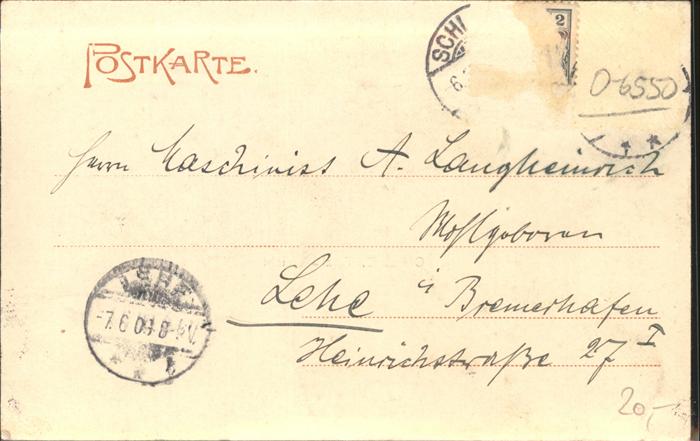 POSTKARTE.
SCHI
2
6.
D-6550
Herrn Maschinist A. Langheinrich
Wohlgeboren
Lehe i Bremerhafen
LEHE
7.6.0 8-9V.
Heinrichstraße 27 I
20,-